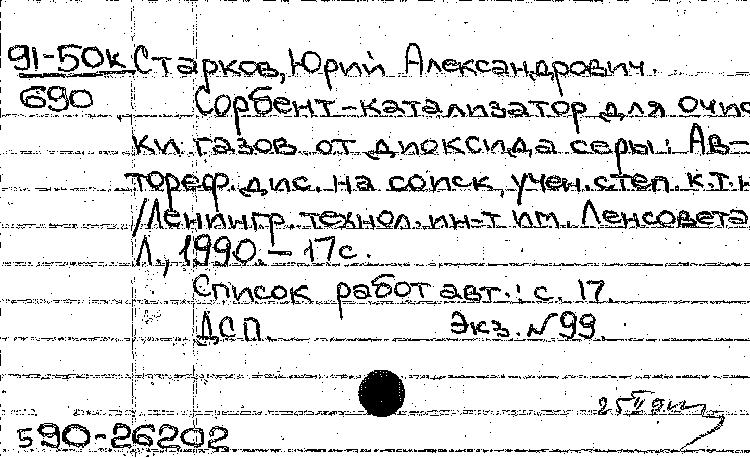 91-50к Старков, Юрий Александрович.
690 Сорбент-катализатор для очис
ки газов от диоксида серы: Ав-
тореф. дис. на соиск. учен. степ. к.т.н
/Ленингр. технол. ин-т им. Ленсовета
Л., 1990. – 17с.
Список работ авт.: с. 17.
ДСП. Экз. №99.
590-26202